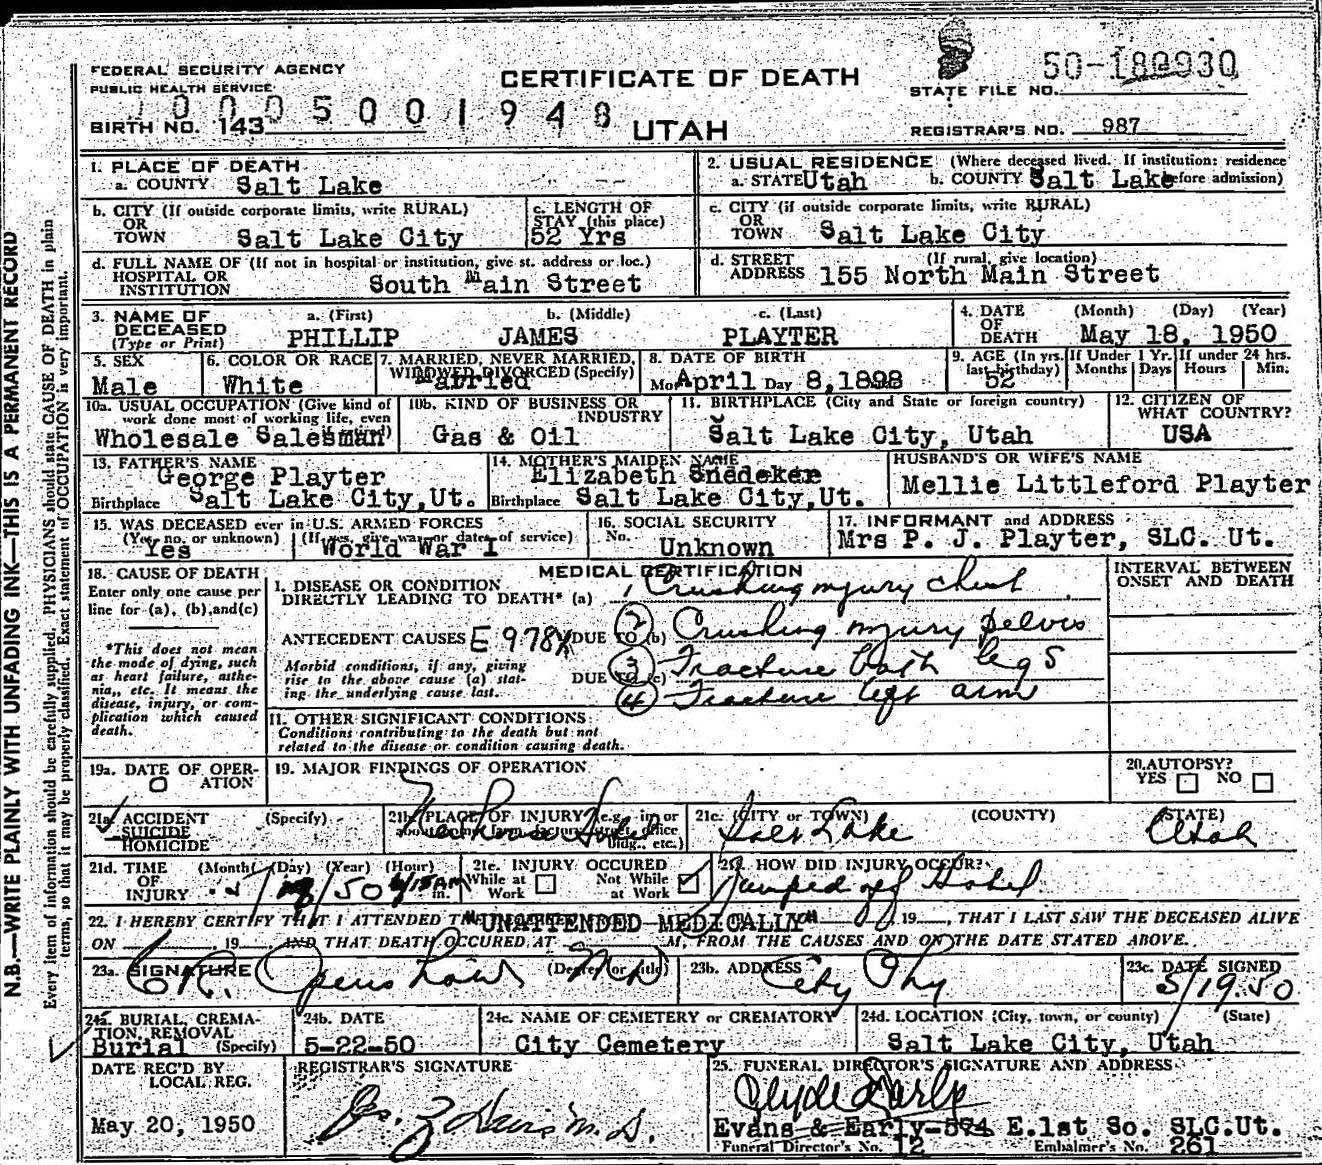 FEDERAL SECURITY AGENCY
PUBLIC HEALTH SERVICE
CERTIFICATE OF DEATH
STATE FILE NO.
BIRTH NO. 143
UTAH
REGISTRAR'S NO. 987
1. PLACE OF DEATH
a. COUNTY Salt Lake
2. USUAL RESIDENCE (Where deceased lived. If institution: residence before admission)
a. STATE Utah b. COUNTY Salt Lake
b. CITY (If outside corporate limits, write RURAL)
OR
TOWN Salt Lake City
c. LENGTH OF
STAY (this place)
52 Yrs
c. CITY (if outside corporate limits, write RURAL)
OR
TOWN Salt Lake City
d. FULL NAME OF (If not in hospital or institution, give st. address or loc.)
HOSPITAL OR
INSTITUTION South Main Street
d. STREET (If rural, give location)
ADDRESS 155 North Main Street
3. NAME OF DECEASED a. (First) b. (Middle) c. (Last)
(Type or Print) PHILLIP JAMES PLAYTER
4. DATE OF DEATH (Month) (Day) (Year)
May 18, 1950
5. SEX
Male
6. COLOR OR RACE
White
7. MARRIED, NEVER MARRIED,
WIDOWED, DIVORCED (Specify)
Married
8. DATE OF BIRTH
Mo. April Day 8, 1898
9. AGE (In yrs. last birthday)
52
If Under 1 Yr. Months Days
If under 24 hrs. Hours Min.
10a. USUAL OCCUPATION (Give kind of
work done most of working life, even
Wholesale Salesman
10b. KIND OF BUSINESS OR
INDUSTRY
Gas & Oil
11. BIRTHPLACE (City and State or foreign country)
Salt Lake City, Utah
12. CITIZEN OF
WHAT COUNTRY?
USA
13. FATHER'S NAME
George Playter
Birthplace Salt Lake City, Ut.
14. MOTHER'S MAIDEN NAME
Elizabeth Snedeker
Birthplace Salt Lake City, Ut.
HUSBAND'S OR WIFE'S NAME
Mellie Littleford Playter
15. WAS DECEASED ever in U.S. ARMED FORCES
(Yes, no, or unknown) (If yes, give war or dates of service)
Yes World War I
16. SOCIAL SECURITY
No. Unknown
17. INFORMANT and ADDRESS
Mrs P. J. Playter, SLC. Ut.
18. CAUSE OF DEATH
Enter only one cause per
line for (a), (b), and (c)
*This does not mean
the mode of dying, such
as heart failure, asthe-
nia, etc. It means the
disease, injury, or com-
plication which caused
death.
MEDICAL CERTIFICATION
INTERVAL BETWEEN
ONSET AND DEATH
I. DISEASE OR CONDITION
DIRECTLY LEADING TO DEATH* (a) 1 Crushing injury chest
ANTECEDENT CAUSES E 978X DUE TO (b) 2 Crushing injury pelvis
Morbid conditions, if any, giving
rise to the above cause (a) stat-
ing the underlying cause last.
DUE TO (c) 3 Fracture both legs
4 Fracture left arm
11. OTHER SIGNIFICANT CONDITIONS
Conditions contributing to the death but not
related to the disease or condition causing death.
19a. DATE OF OPER-
ATION
O
19. MAJOR FINDINGS OF OPERATION
20. AUTOPSY?
YES NO
21a. ACCIDENT (Specify)
SUICIDE
HOMICIDE
21b. PLACE OF INJURY (e.g., in or
Newhouse Hotel
21c. (CITY or TOWN) (COUNTY) (STATE)
Salt Lake Utah
21d. TIME (Month) (Day) (Year) (Hour)
OF
INJURY
21e. INJURY OCCURED
While at Work Not While at Work
21f. HOW DID INJURY OCCUR?
Jumped off Hotel
22. I HEREBY CERTIFY THAT I ATTENDED UNATTENDED MEDICALLY 19 , THAT I LAST SAW THE DECEASED ALIVE
ON , 19 AND THAT DEATH OCCURED AT M, FROM THE CAUSES AND ON THE DATE STATED ABOVE.
23a. SIGNATURE (Degree or title)
MD
23b. ADDRESS
City Phy
23c. DATE SIGNED
5/19.50
24a. BURIAL, CREMA-
TION, REMOVAL
Burial (Specify)
24b. DATE
5-22-50
24c. NAME OF CEMETERY or CREMATORY
City Cemetery
24d. LOCATION (City, town, or county) (State)
Salt Lake City, Utah
DATE REC'D BY
LOCAL REG.
May 20, 1950
REGISTRAR'S SIGNATURE
M.D.
25. FUNERAL DIRECTOR'S SIGNATURE AND ADDRESS
Clyde Early
Evans & Early-574 E.1st So. SLC.Ut.
Funeral Director's No. 12 Embalmer's No. 261
N.B.—WRITE PLAINLY WITH UNFADING INK—THIS IS A PERMANENT RECORD
Every item of information should be carefully supplied. PHYSICIANS should state CAUSE OF DEATH in plain
terms, so that it may be properly classified. Exact statement of OCCUPATION is very important.